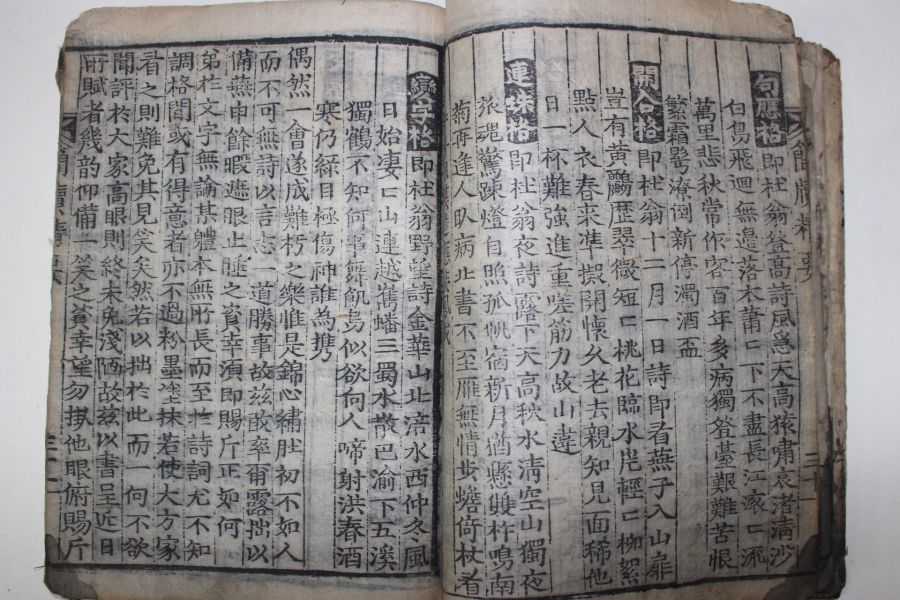 句應格即杜翁登高詩風急天高猿嘯哀渚清沙
白鳥飛迴無邊落木蕭〻下不盡長江滾〻流
萬里悲秋常作客百年多病獨登臺艱難苦恨
繁霜鬢潦倒新停濁酒盃
開合格即杜翁十二月一日詩即看燕子入山扉
豈有黃鸝歷翠微短〻桃花臨水岸輕〻柳絮
點人衣春來準擬開懷久老去親知見面稀他
日一杯難強進重嗟筋力故山違
連珠格即杜翁夜詩露下天高秋水淸空山獨夜
旅魂驚踈燈自照孤帆宿新月猶懸雙杵鳴南
菊再逢人臥病北書不至雁無情步蟾倚杖看
母格即杜翁野望詩金華山北涪水西仲冬風
日始凄〻山連越嶲蟠三蜀水散巴渝下五溪
獨鶴不知何事舞飢烏似欲何人啼射洪春酒
寒仍綠目極傷神誰為携
偶然一會遂成難朽之樂惟是錦心繡肚初不如人
而不可無詩以言志一道勝事故茲敢率爾露拙以
備燕申餘暇遮眼止睡之資幸須即賜斤正如何
弟於文字無論某體本無所長而至於詩詞尤不知
調格間或有得意者亦不過粉墨塗抹若使大方家
看之則難免其見笑矣然若以拙於此而一向不欲
聞評於大家高眼則終未免淺陋故茲以書呈近日
所賦者幾韵仰備一笑之資幸望勿掛他眼俯賜斤